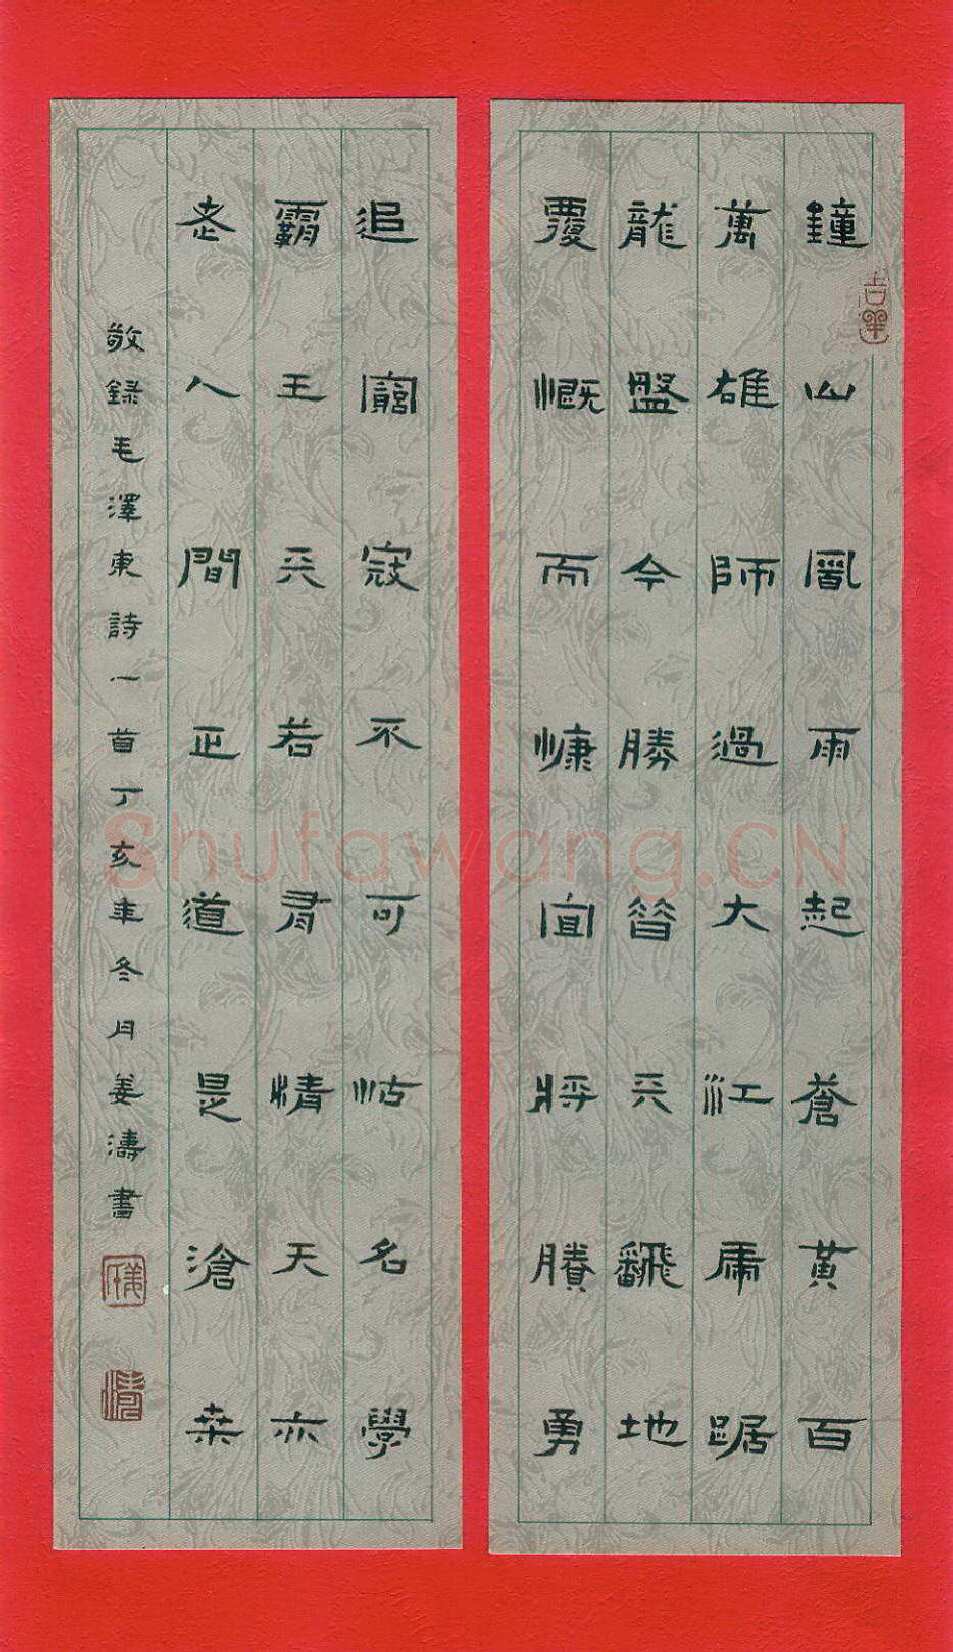 鐘山風雨起蒼黃百
萬雄師過大江虎踞
龍盤今勝昔天飜地
覆慨而慷宜將賸勇
追窮寇不可沽名學
霸王天若有情天亦
老人間正道是滄桑
敬録毛澤東詩一首丁亥年冬月姜濤書
Shufawang.CN